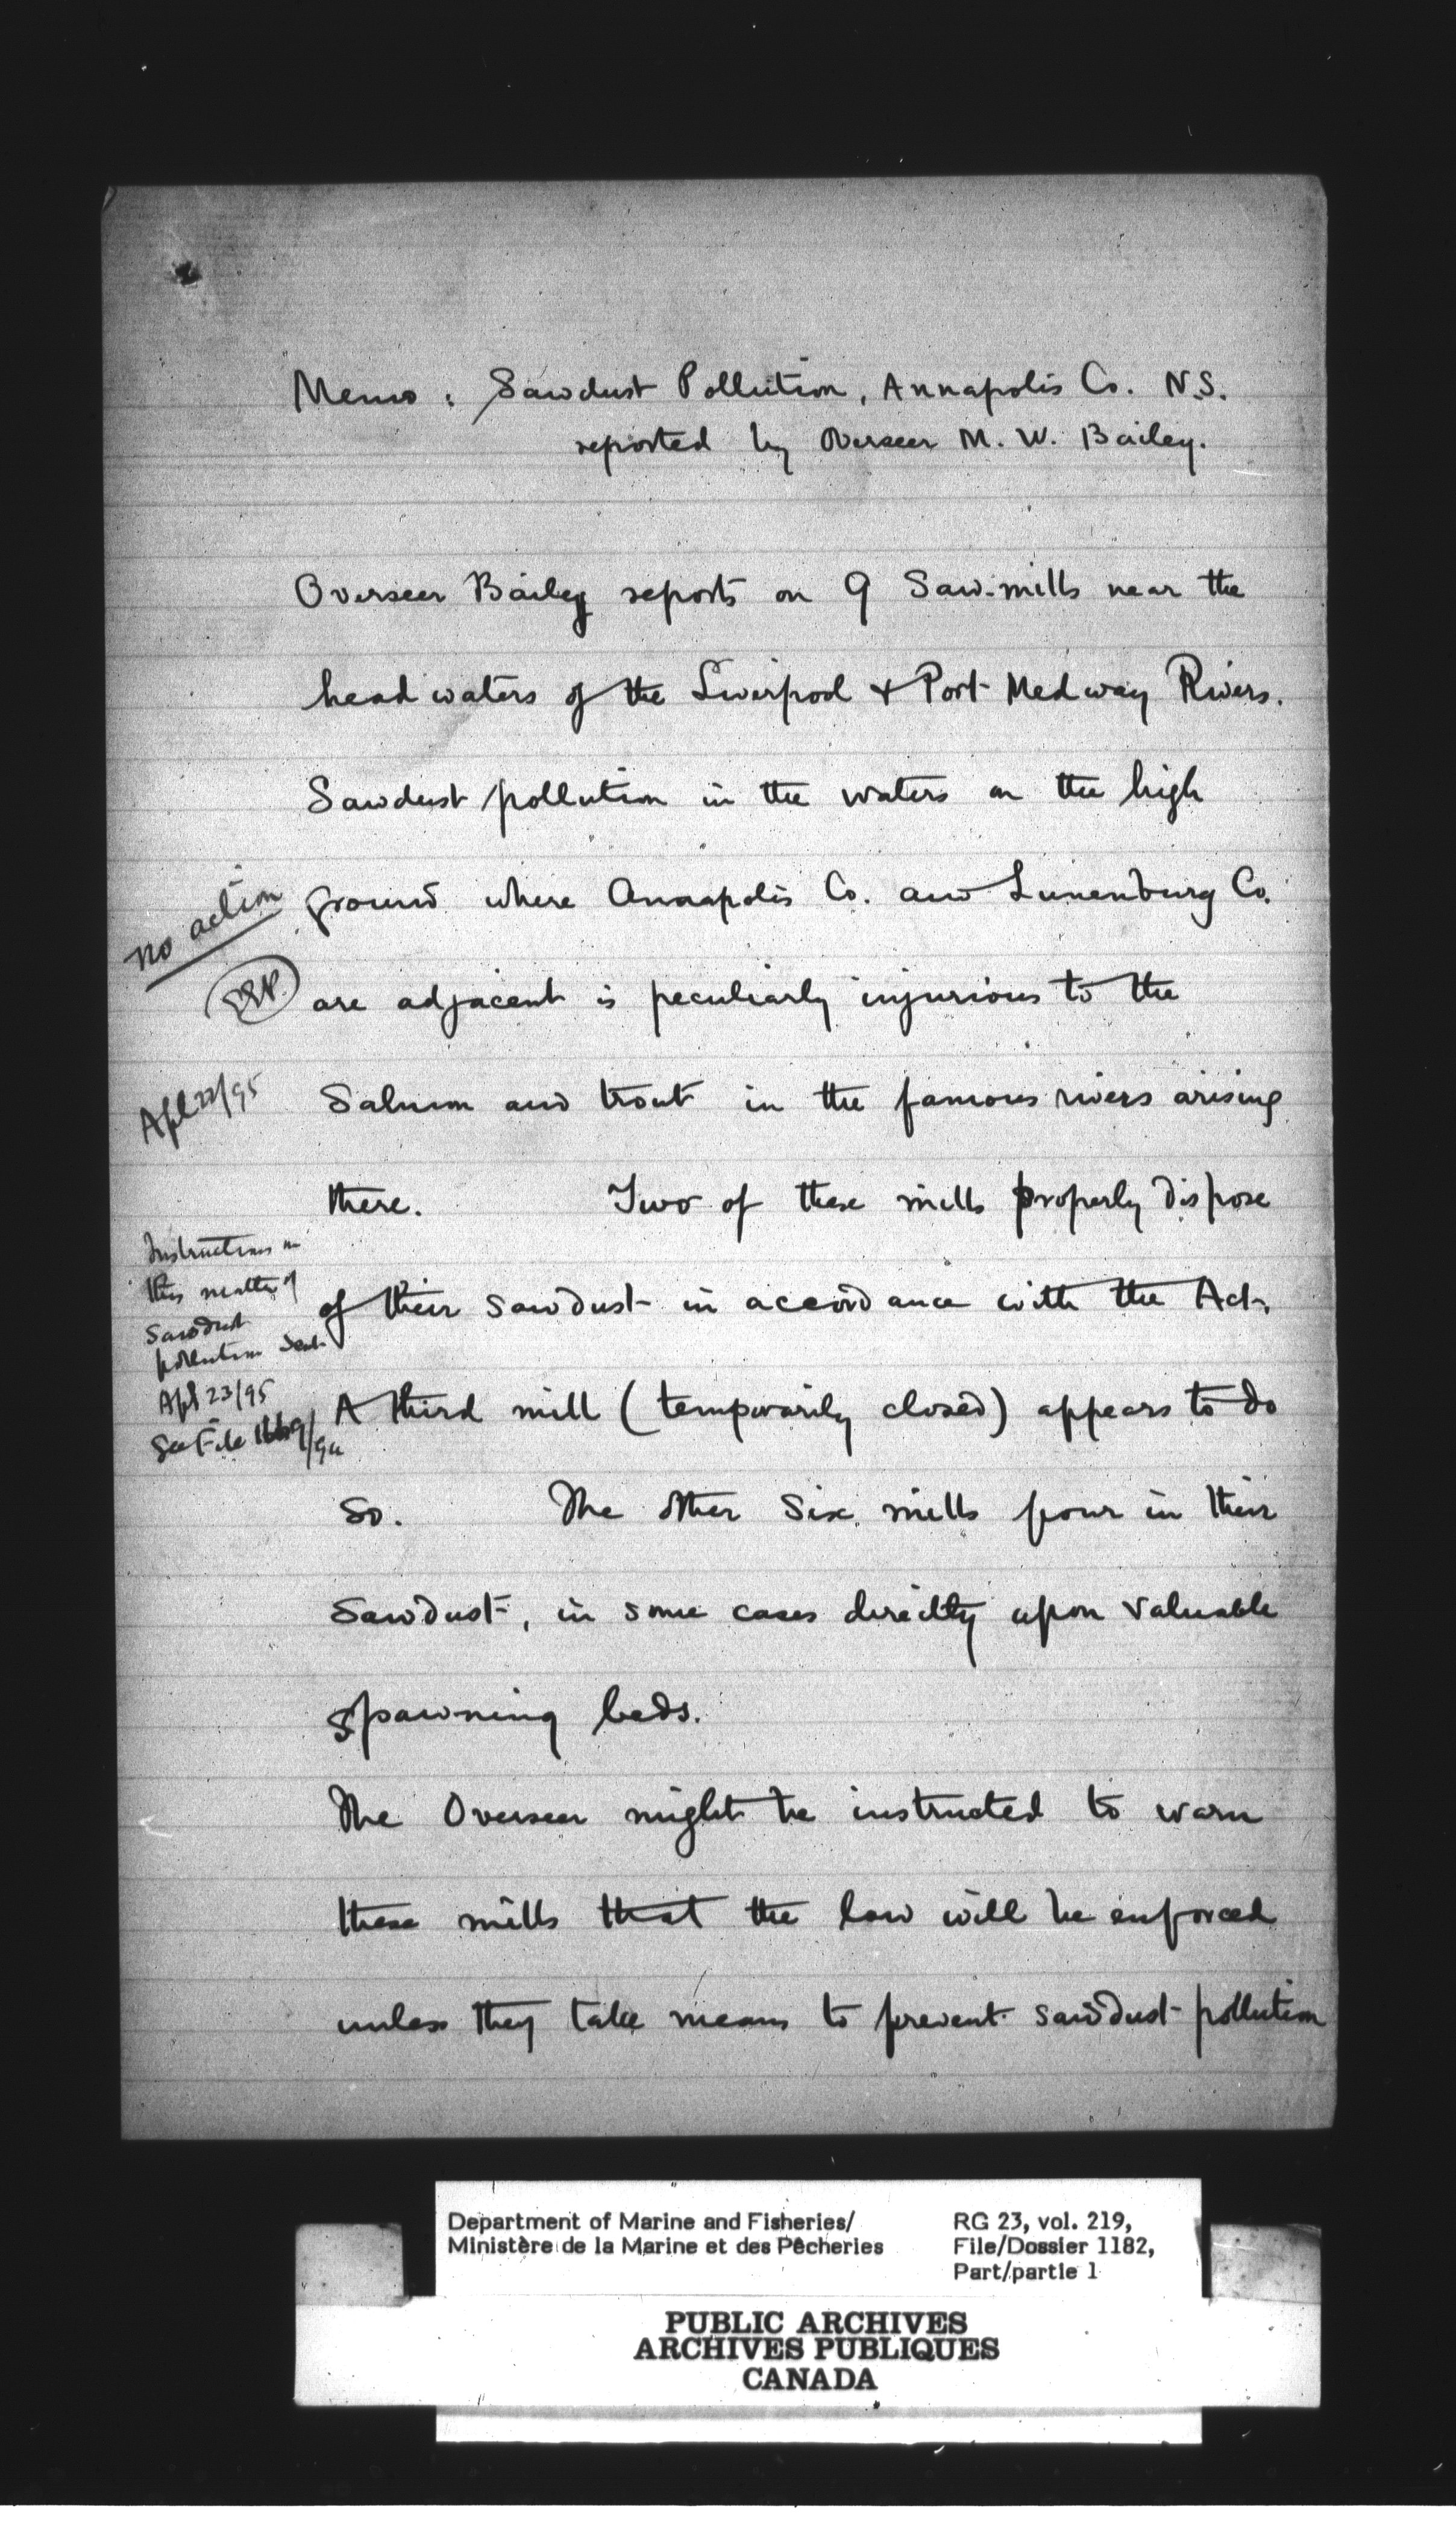 Memo: Sawdust Pollution, Annapolis Co. N.S.
reported by Overseer M. W. Bailey.
Overseer Bailey reports on 9 Saw-mills near the
head waters of the Liverpool & Port Medway Rivers.
Sawdust pollution in the waters on the high
ground where Annapolis Co. and Lunenburg Co.
are adjacent is peculiarly injurious to the
Salmon and trout in the famous rivers arising
there. Two of these mills properly dispose
of their sawdust in accordance with the Act.
A third mill (temporarily closed) appears to do
so. The other six mills pour in their
sawdust, in some cases directly upon valuable
spawning beds.
The Overseer might be instructed to warn
these mills that the law will be enforced
unless they take means to prevent sawdust pollution
no action
Apl 22/95
Instructions in
this matter of
Sawdust
pollution sent
Apl 23/95
See File
Department of Marine and Fisheries/
Ministère de la Marine et des Pêcheries
RG 23, vol. 219,
File/Dossier 1182,
Part/partie 1
PUBLIC ARCHIVES
ARCHIVES PUBLIQUES
CANADA